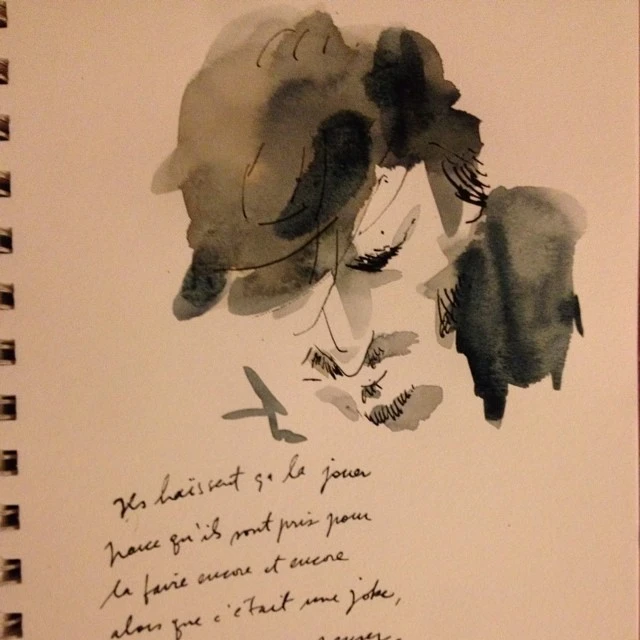 Ils haïssent ça le jouer
parce qu'ils sont pris pour
le faire encore et encore
alors que c'était une joke,